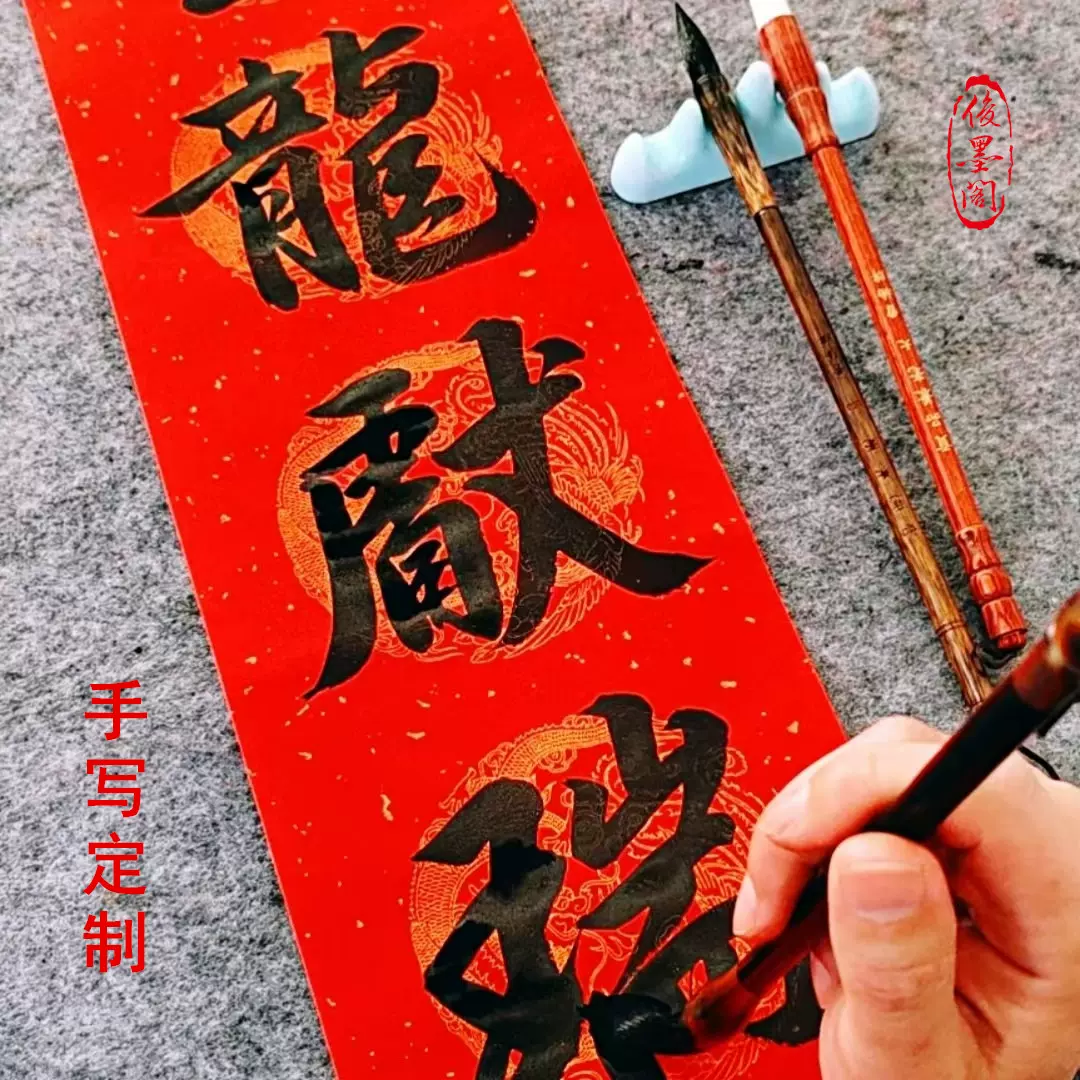 龍獻瑞
俊墨阁
手写定制